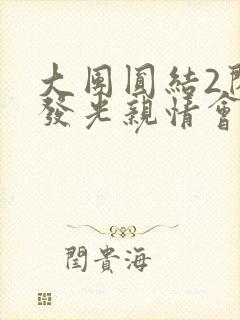 大團圓結2
發光親情會
閏貴海